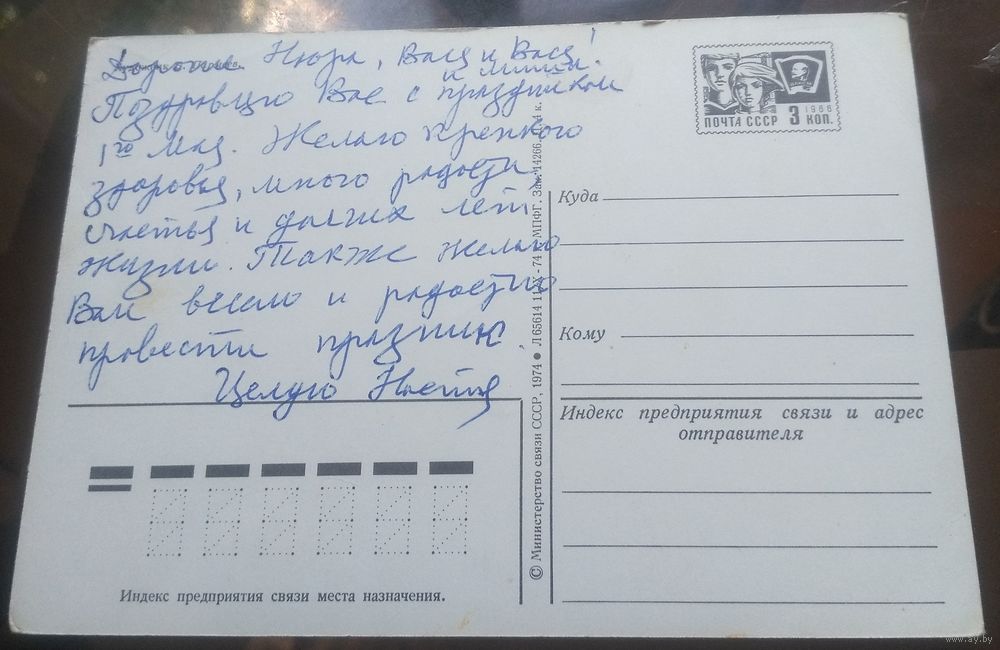 Дорогие Нюра, Валя и Вася!
и Миша.
Поздравляю Вас с праздником
1го Мая. Желаю крепкого
здоровья, много радости
счастья и долгих лет
жизни. Также желаю
Вам весело и радостно
провести праздник.
Целую Настя
ПОЧТА СССР 3 КОП.
1966
Куда
Кому
Индекс предприятия связи и адрес
отправителя
© Министерство связи СССР, 1974 ● Л 65614 МПФГ. Зак. 14266.
Индекс предприятия связи места назначения.
www.ay.by